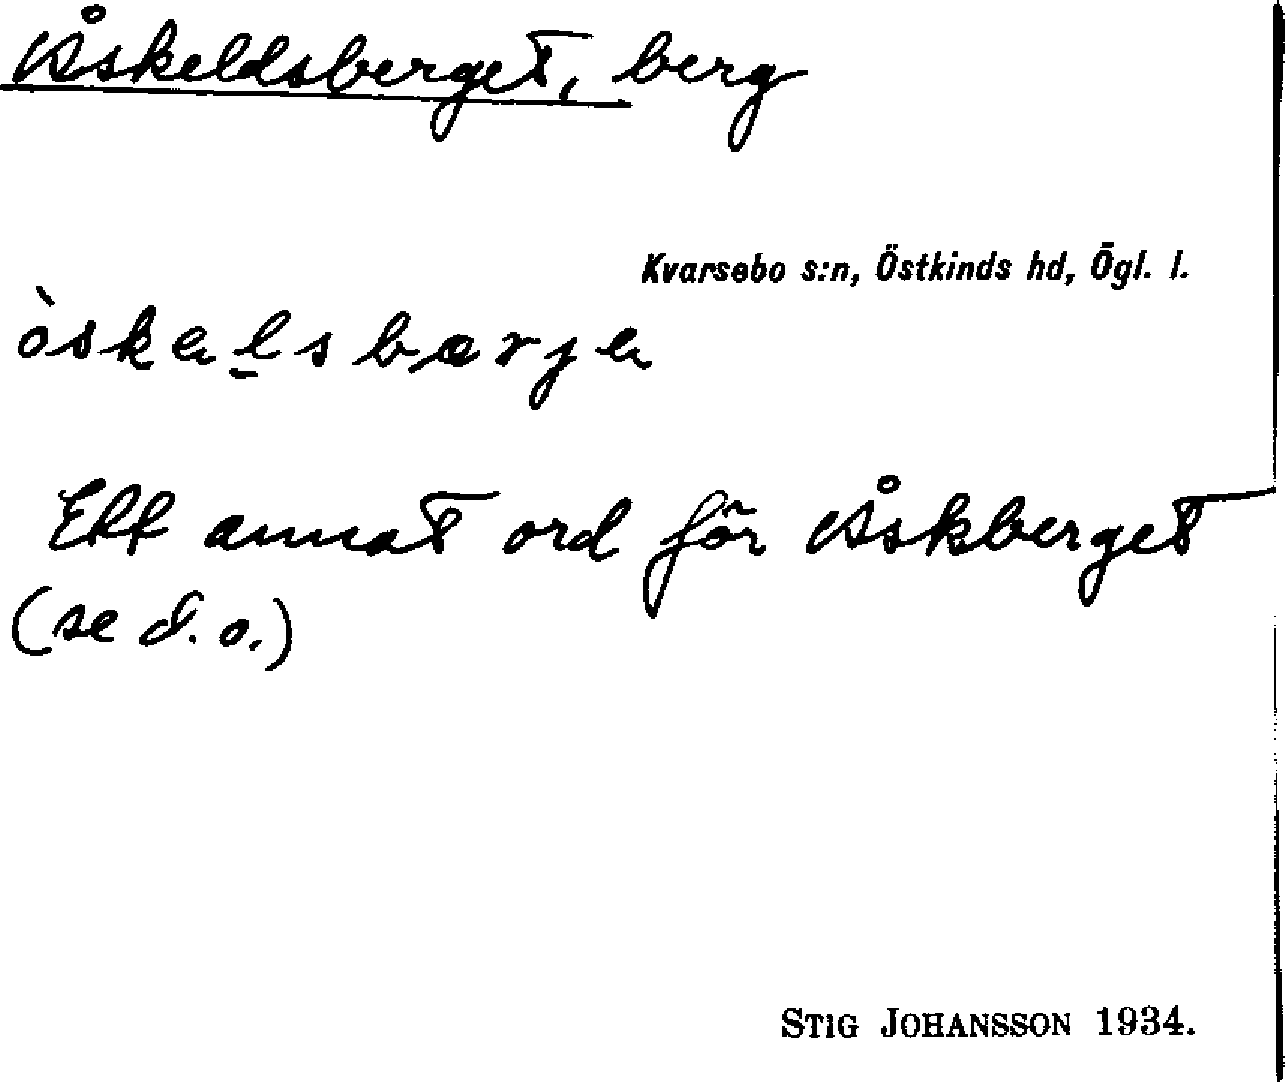 Åskeldsberget, berg
Kvarsebo s:n, Östkinds hd, Ögl. l.
òskəl̲sbærjə
Ett annat ord för Åskberget
(se d. o.)
STIG JOHANSSON 1934.